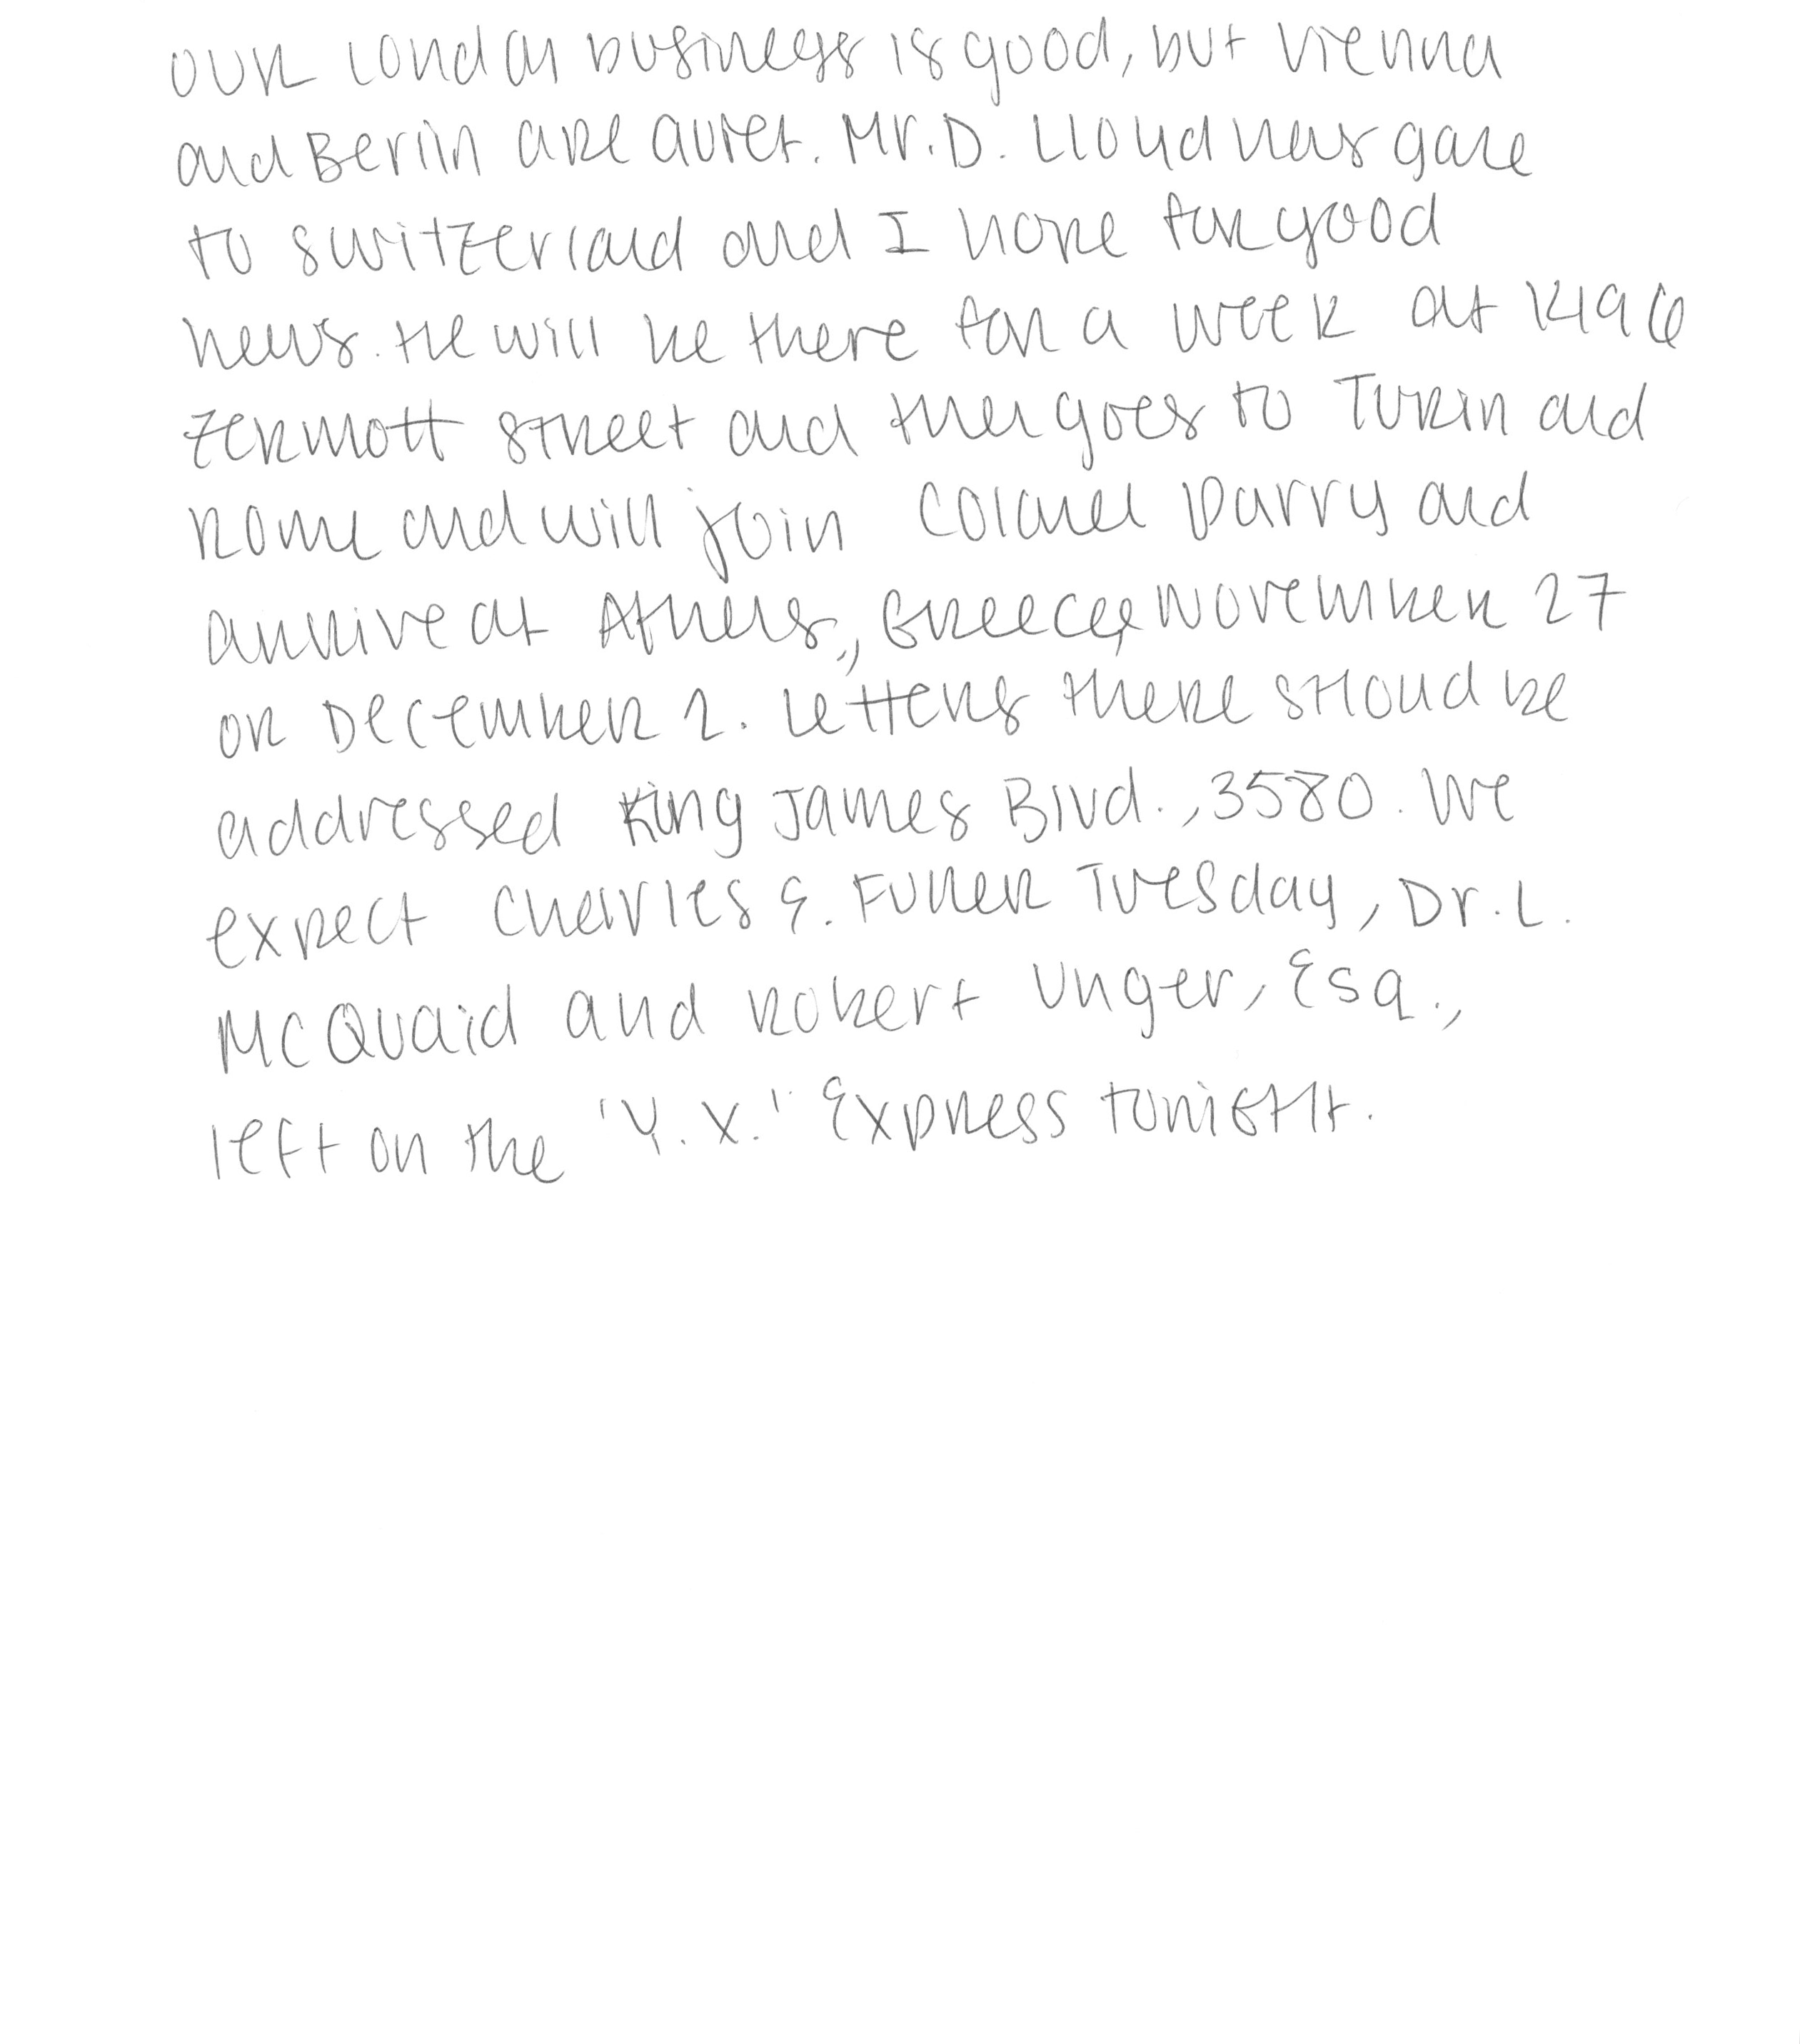 Our London business is good, but Vienna
and Berlin are quiet. Mr. D. Lloyd has gone
to Switzerland and I hope for good
news. He will be there for a week at 1496
Zermott Street and then goes to Turin and
Rome and will join Colonel Parry and
arrive at Athens, Greece, November 27
or December 2. Letters there should be
addressed King James Blvd., 3580. We
expect Charles E. Fuller Tuesday, Dr. L.
McQuaid and Robert Unger, Esq.,
left on the "Y. X." Express tonight.